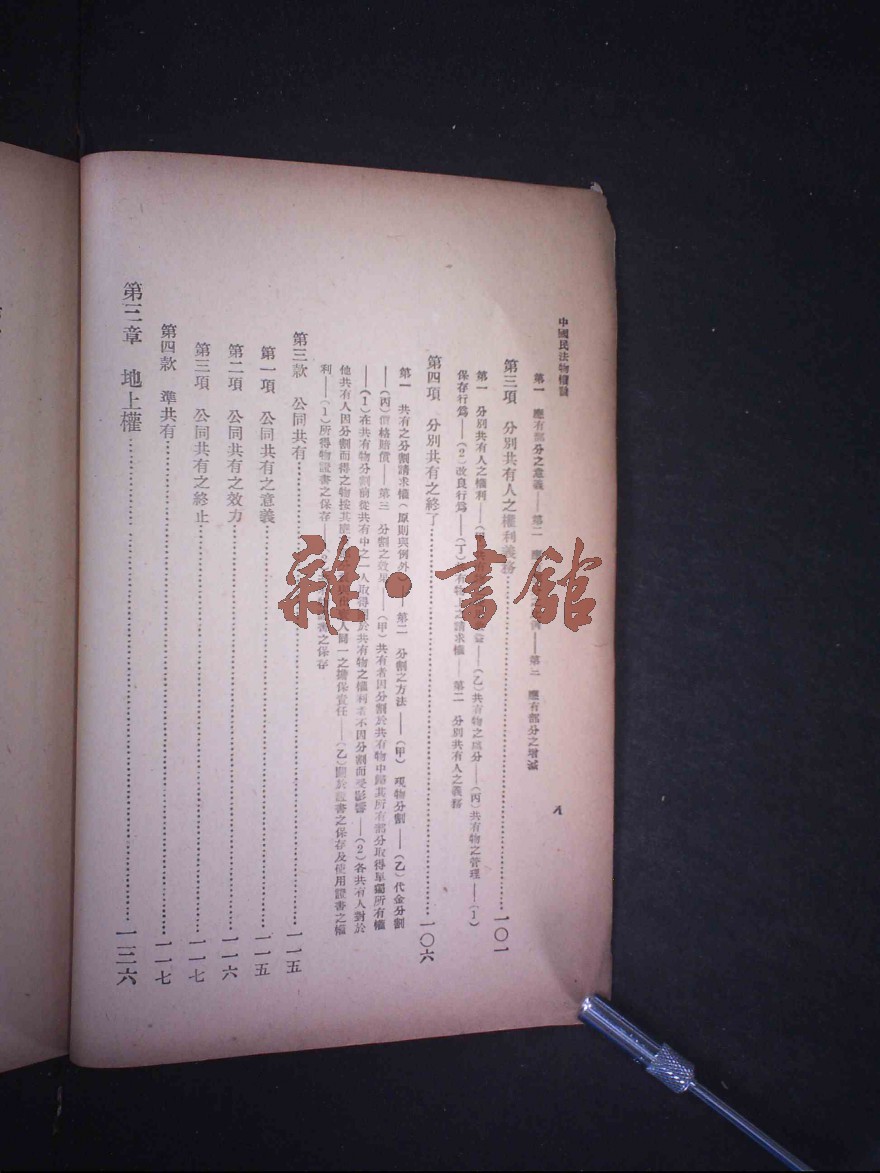 中國民法物權論
第一　應有部分之意義——第二　應——第三　應有部分之增減
第三項　分別共有人之權利義務……一〇一
第一　分別共有人之權利——益——(乙)共有物之處分——(丙)共有物之管理——(1)
保存行爲——(2)改良行爲——(丁)有物上之請求權——第二　分別共有人之義務
第四項　分別共有之終了……一〇六
第一　共有之分割請求權(原則與例外)——第二　分割之方法——(甲)現物分割——(乙)代金分割
——(丙)價格賠償——第三　分割之效果——(甲)共有者因分割於共有物中歸其所有部分取得單獨所有權
——(1)在共有物分割前從共有中之一人取得關於共有物之權利者不因分割而受影響——(2)各共有人對於
他共有人因分割而得之物按其應人同一之擔保責任——(乙)關於證書之保存及使用證書之權
利——(1)所得物證書之保存——證書之保存
第三款　公同共有……一一五
第一項　公同共有之意義……一一五
第二項　公同共有之效力……一一六
第三項　公同共有之終止……一一七
第四款　準共有……一一七
第三章　地上權……一三六
雜·書館